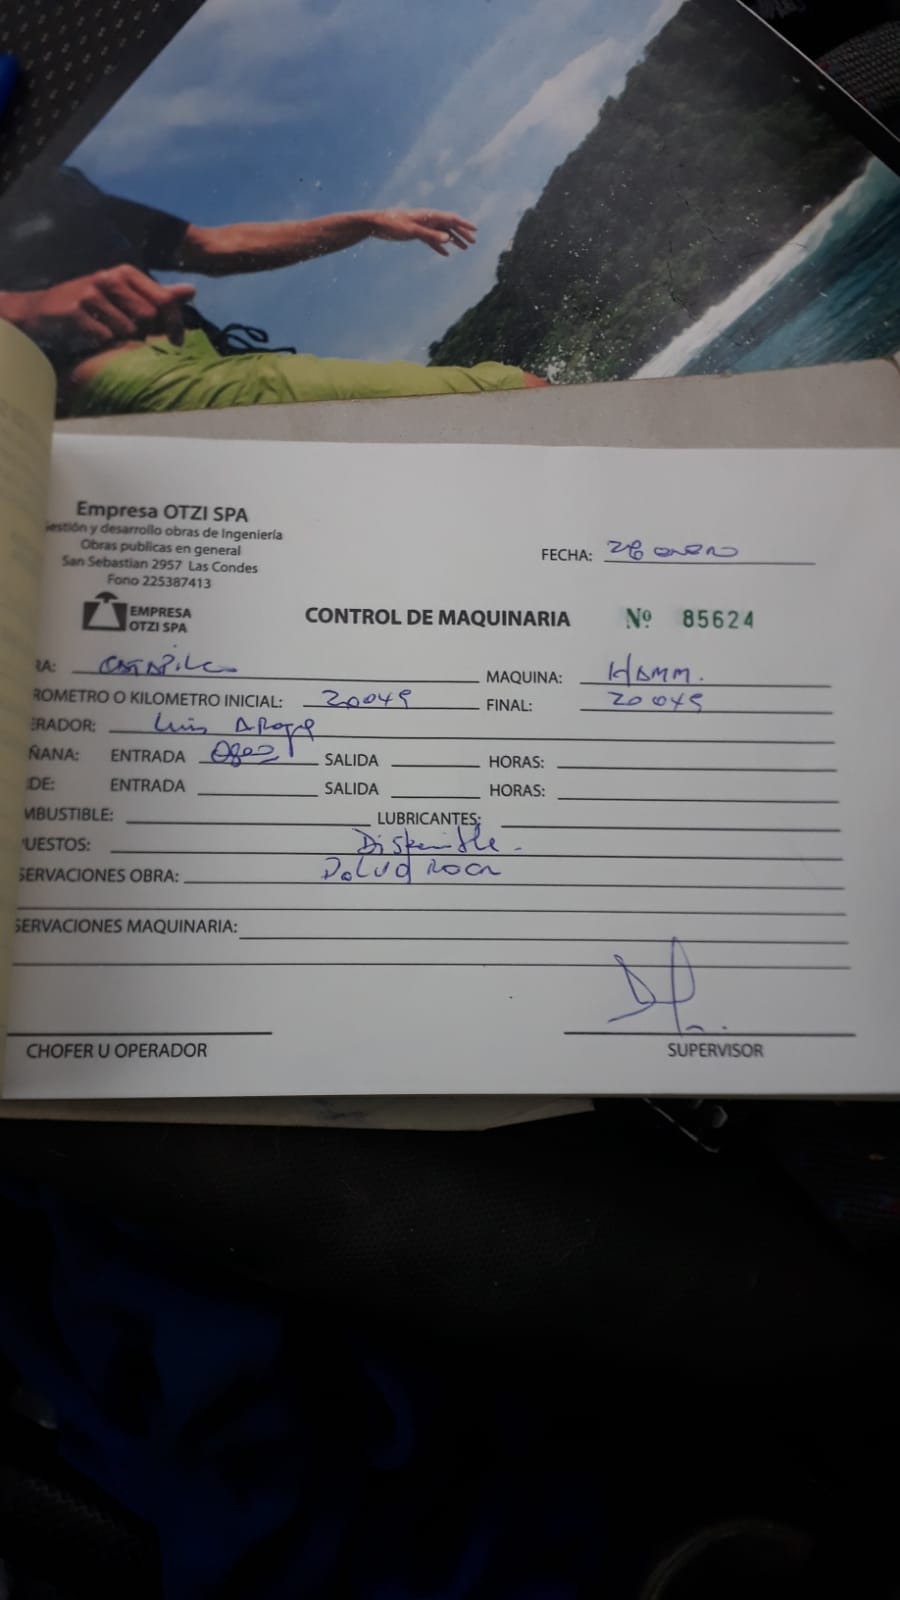 Empresa OTZI SPA
Gestión y desarrollo obras de Ingeniería
Obras publicas en general
San Sebastian 2957 Las Condes
Fono 225387413
FECHA: enero
EMPRESA
OTZI SPA
CONTROL DE MAQUINARIA Nº 85624
RA: MAQUINA: HAMM.
ROMETRO O KILOMETRO INICIAL: 20049 FINAL: 20049
ERADOR: Luis
ÑANA: ENTRADA SALIDA HORAS:
DE: ENTRADA SALIDA HORAS:
MBUSTIBLE: LUBRICANTES:
UESTOS: Disponible.
SERVACIONES OBRA:
SERVACIONES MAQUINARIA:
CHOFER U OPERADOR SUPERVISOR